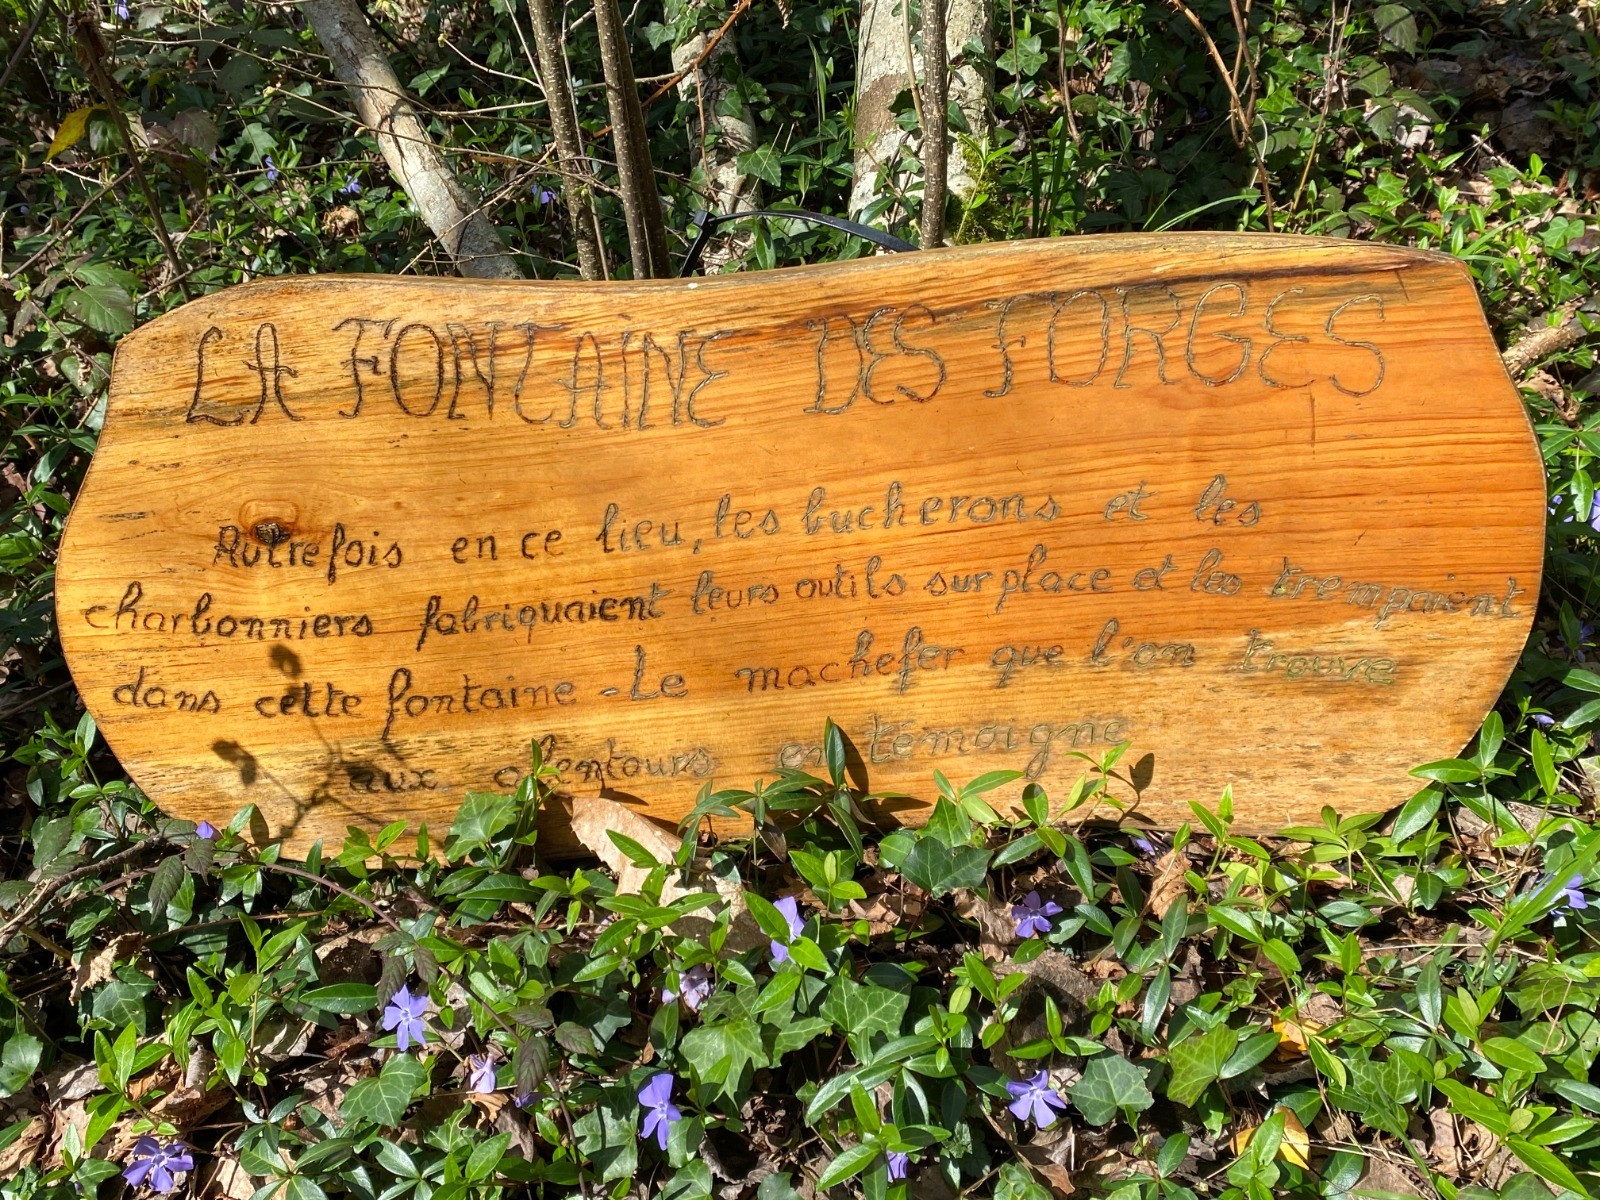 LA FONTAINE DES FORGES
Autrefois en ce lieu, les bucherons et les
charbonniers fabriquaient leurs outils sur place et les trempaient
dans cette fontaine - Le machefer que l'on trouve
aux alentours en témoigne